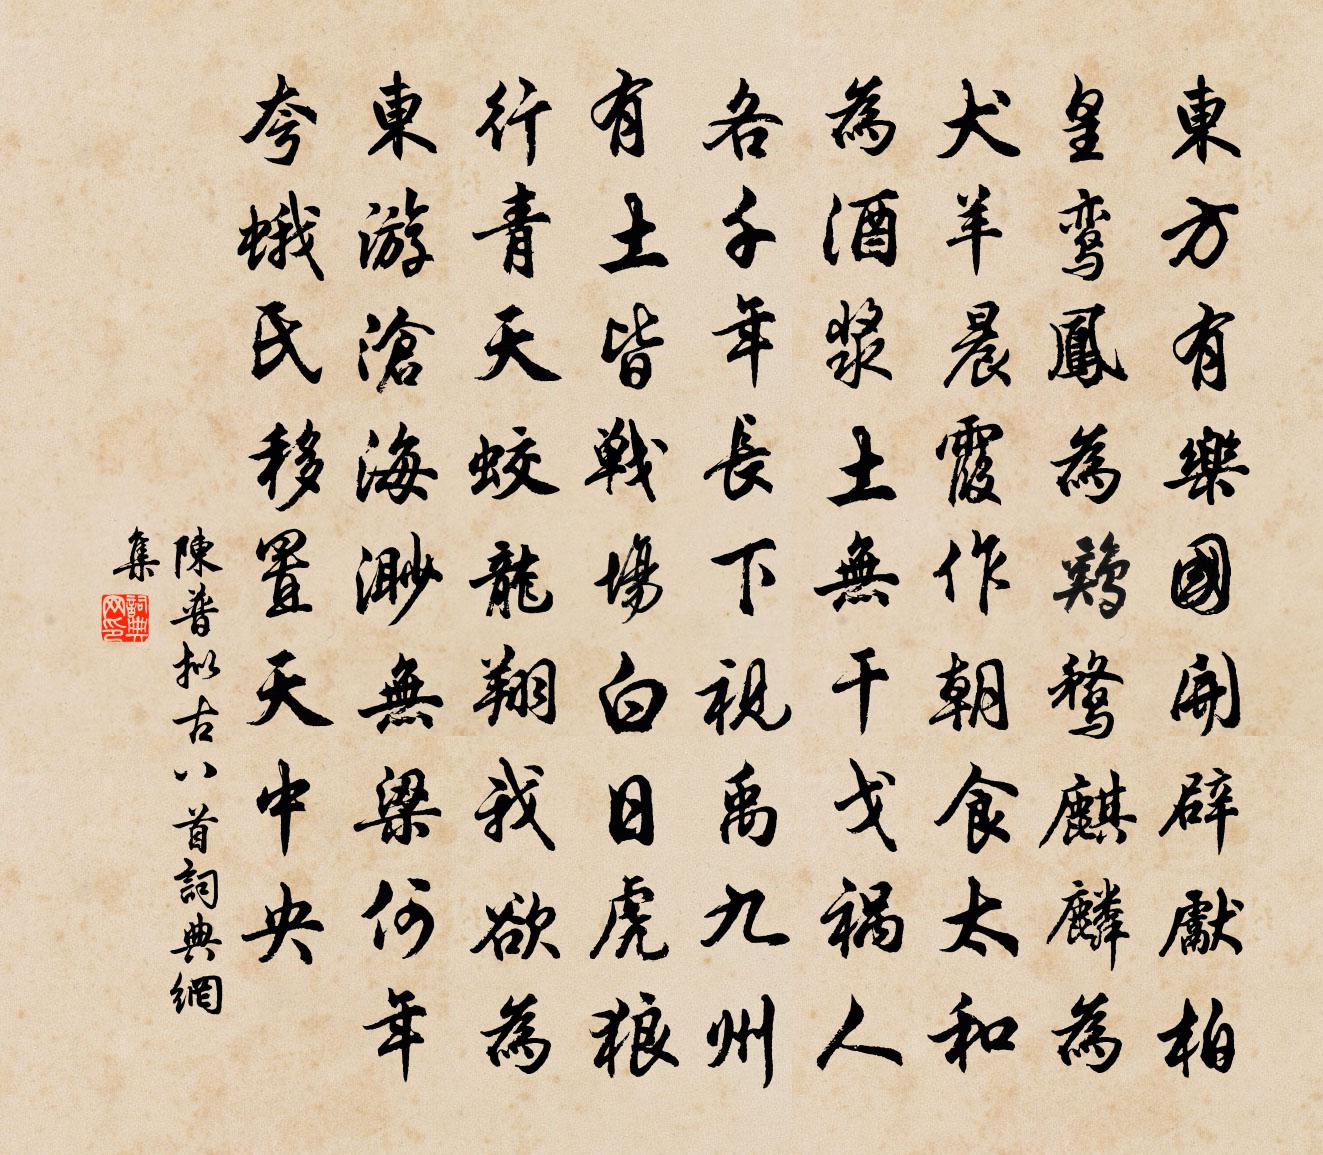 東方有樂國開辟獻柏
皇鸾鳳為鷄鶩麒麟為
犬羊晨霞作朝食太和
為酒漿土無干戈禍人
各千年長下視禹九州
有土皆戰場白日虎狼
行青天蛟龍翔我欲為
東游滄海渺無梁何年
夸蛾氏移置天中央
陳普拟古八首詞典網
集
詞典网印